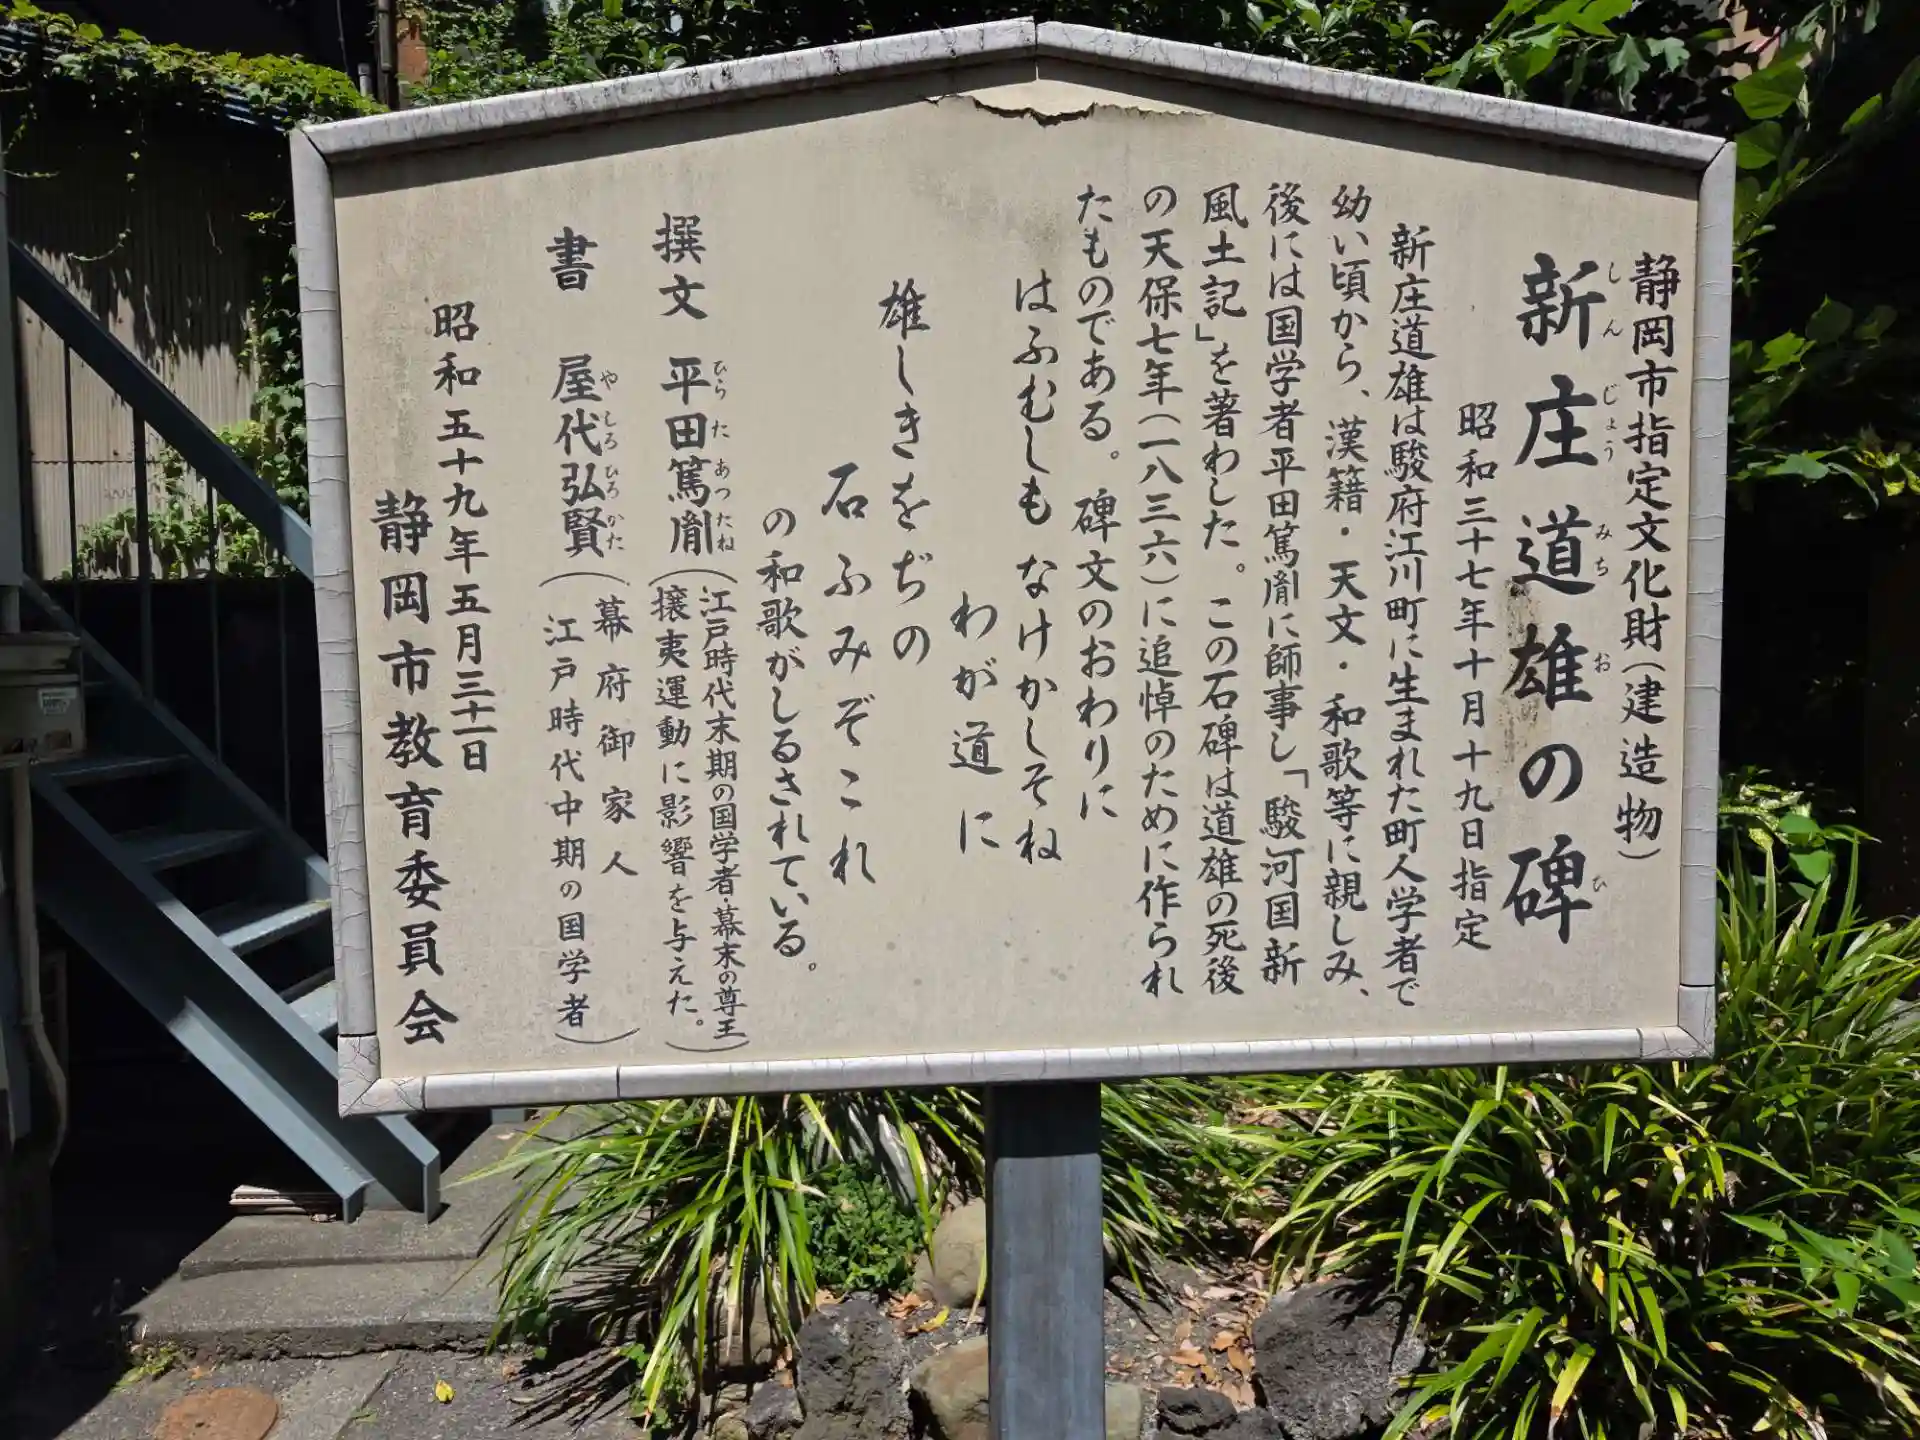 静岡市指定文化財(建造物)
新庄道雄の碑
しんじょうみちおひ
昭和三十七年十月十九日指定
新庄道雄は駿府江川町に生まれた町人学者で
幼い頃から、漢籍・天文・和歌等に親しみ、
後には国学者平田篤胤に師事し「駿河国新
風土記」を著わした。この石碑は道雄の死後
の天保七年(一八三六)に追悼のために作られ
たものである。碑文のおわりに
はふむしも なけかしそね
わが道に
雄しきをぢの
石ふみぞこれ
の和歌がしるされている。
撰文 平田篤胤
ひらたあつたね
(江戸時代末期の国学者・幕末の尊王
攘夷運動に影響を与えた。)
書 屋代弘賢
やしろひろかた
(幕府御家人
江戸時代中期の国学者)
昭和五十九年五月三十一日
静岡市教育委員会